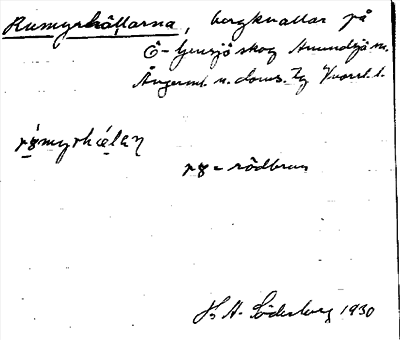 Rumyrhällarna, bergknallar på
Ö-Gensjö skog Anundsjö sn.
Ångerml. n. doms. Tg
rymyrhælan
ry = rödbrun
H. A. Söderberg 1930